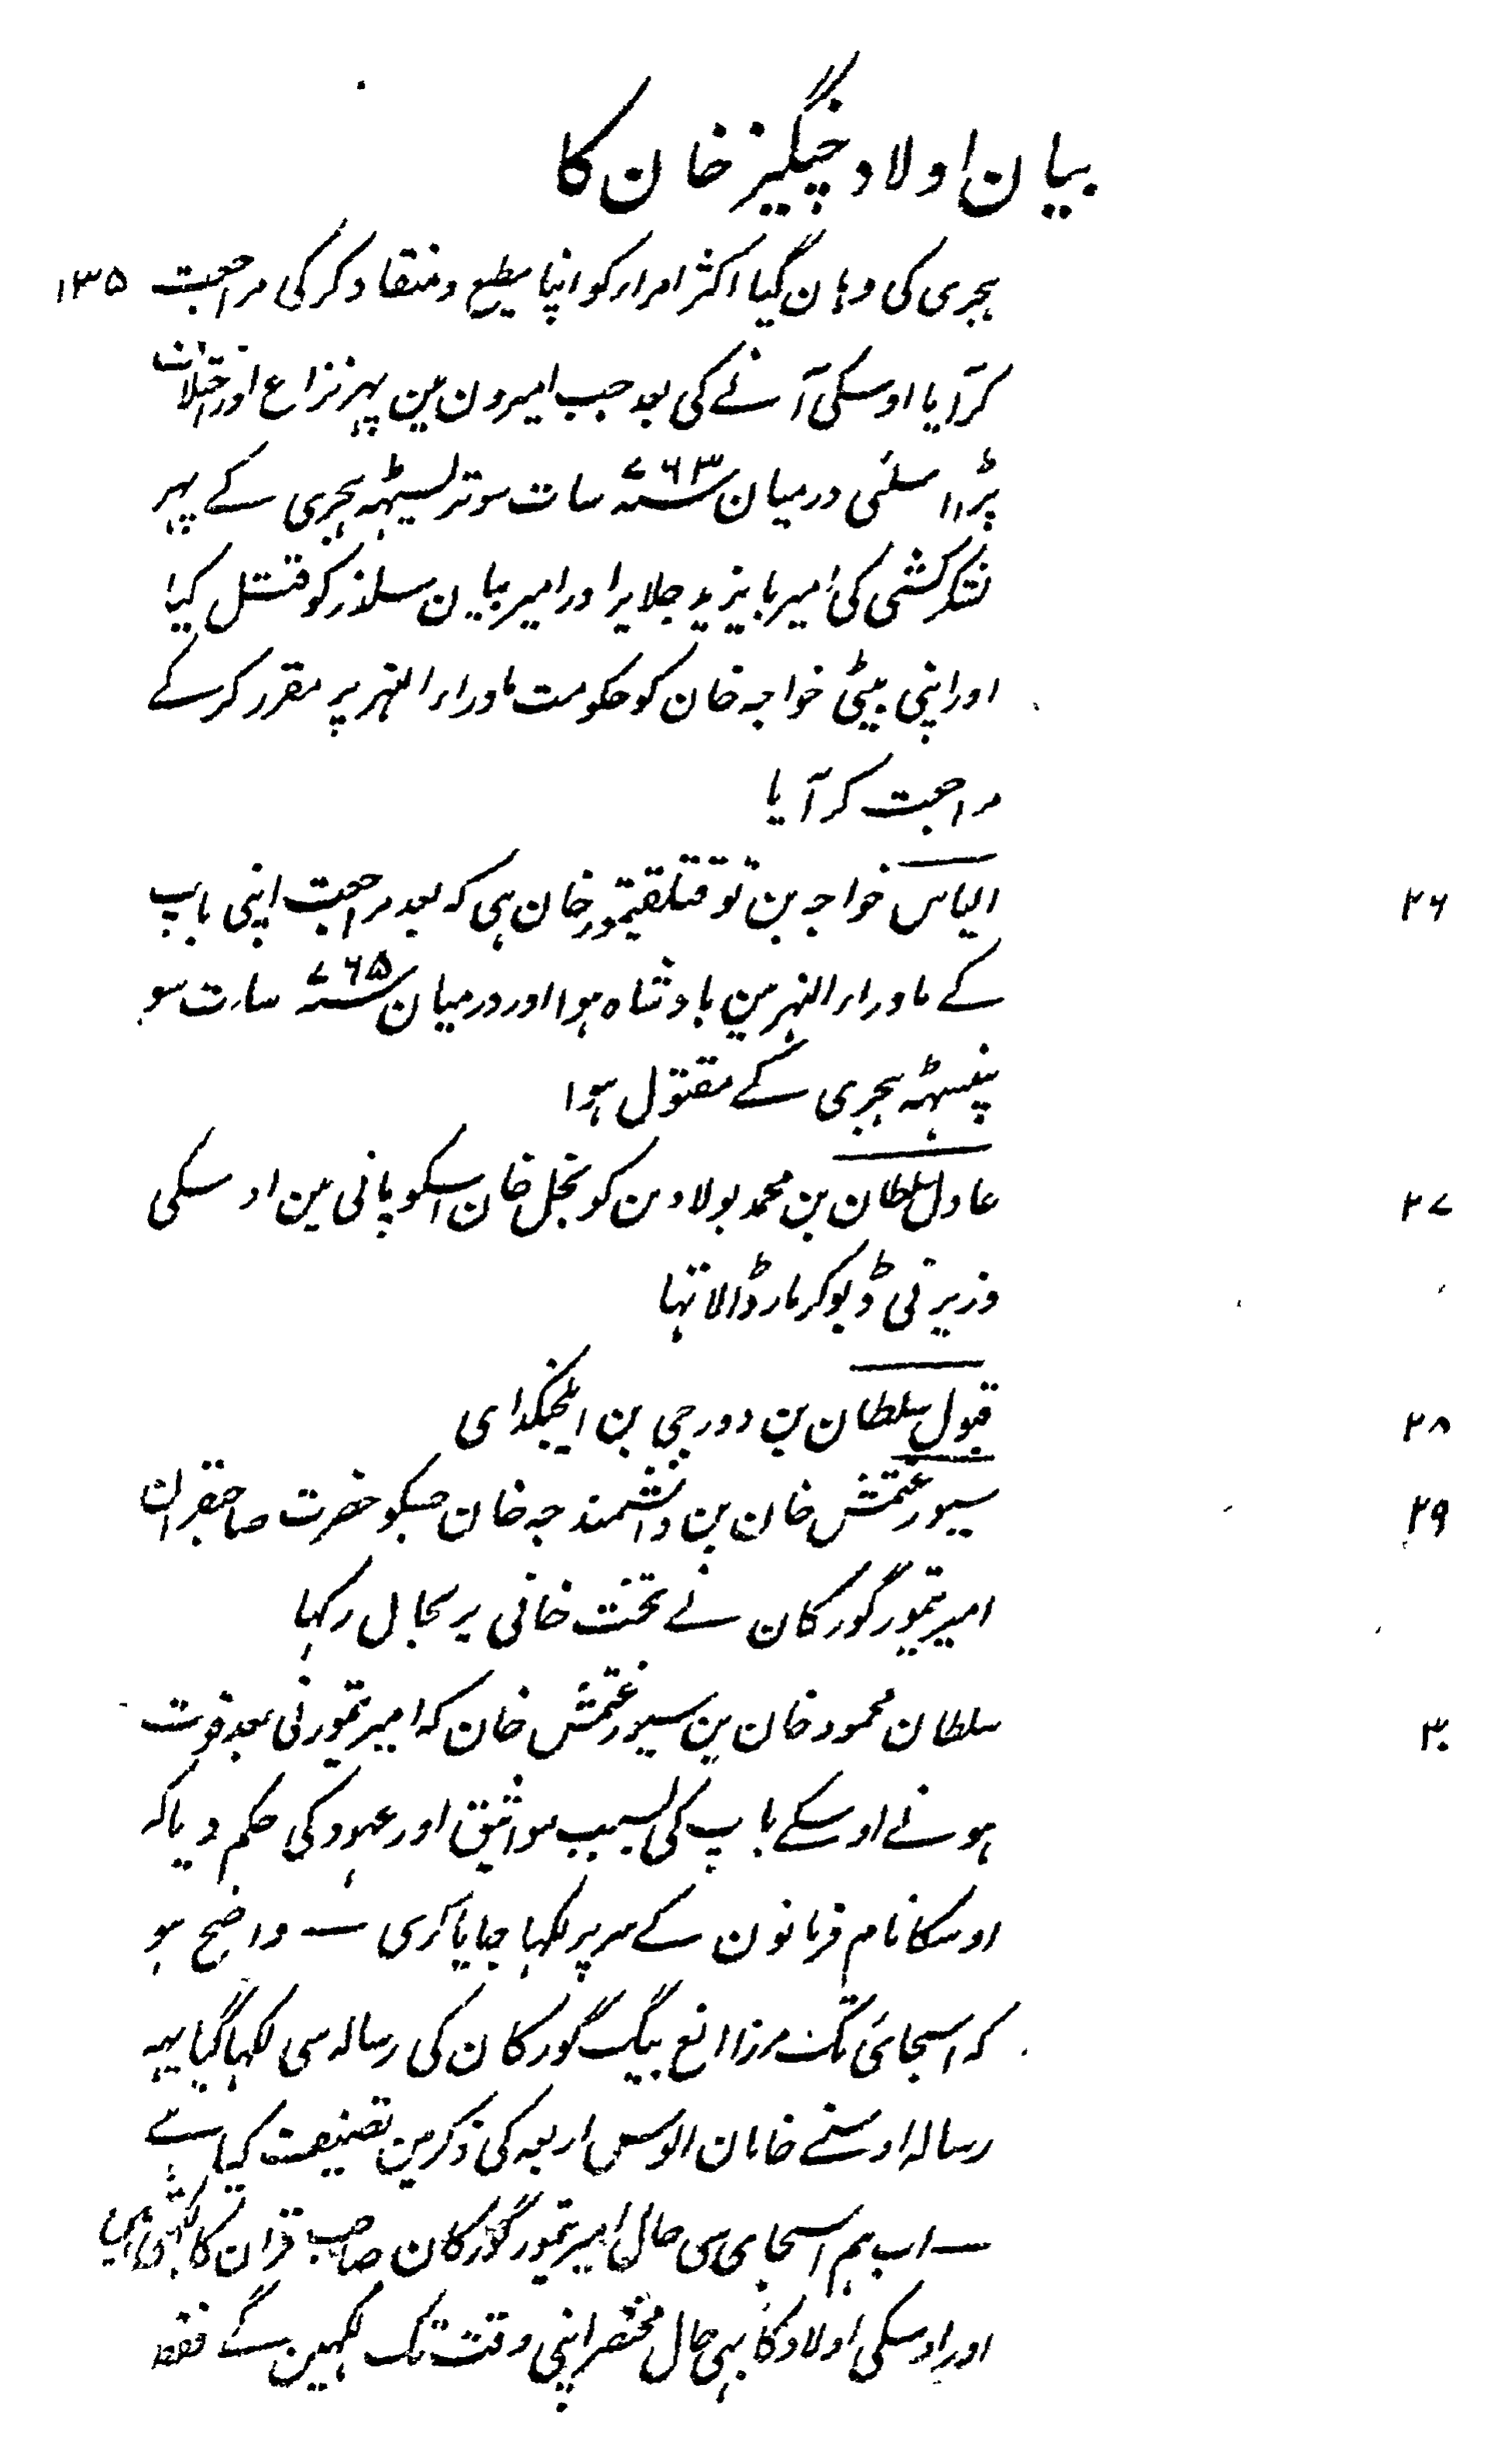 بیان اولاد چنگیز خان کا
ہجری کی وہان گیا اکثر امرار کو اپنا مطیع و منقاد کر کی مراجعت ۱۳۵
کر آیا اوسکی آنے کی بعد جب امیرون مین پہر نزاع اور اختلاف
پڑا اسلئی درمیان ۷۶۳؁ سات سو ترلیسٹہہ ہجری کے پہر
لشکر کشی کی امیر بایزید جلایر اور امیر بیان سلذر کو قتل کیا
اور اپنی بیٹی خواجہ خان کو حکومت ماوراء النہر پر مقرر کرکے
مراجعت کر آیا
۲۶ الیاس خواجہ بن توقتلقتیمور خان ہی کہ بعد مراجعت اپنی باپ
کے ماوراء النہر مین بادشاہ ہوا اور درمیان ۷۶۵؁ سات سو
پنسہٹہ ہجری کے مقتول ہوا
۲۷ عادل سلطان بن محمد بولاد بن کونجل خان اسکو پانی مین اوسکی
وزیر نی ڈبو کر مار ڈالا تہا
۲۸ قبول سلطان بن دورجی بن ایلجیکدای
۲۹ سیورغتمش خان بن دانشمندجہ خان جسکو حضرت صاحبقران
امیر تیمور گورکان نے تخت خانی پر بحال رکہا
۳۰ سلطان محمود خان بن سیورغتمش خان کہ امیر تیمور نی بعد فوت
ہونے اوسکے باپ کی بسبب مواثیق اور عہود کی حکم دیا کہ
اوسکا نام فرمانون کے سر پر لکہا جایا کری ــ واضح ہو
کہ اسجائی تک مرزا الغ بیگ گورکان کی رسالہ سی لکہا گیا یہہ
رسالہ اوسنے خانان الوس اربعہ کی ذکر مین تصنیف کیا ہے
ــ اب ہم اسجای سی حال امیر تیمور گورکان صاحب قران کا لکہتی ہین
اور اوسکی اولاد کا بہی حال مختصر اپنی وقت تک لکہین گے فقط